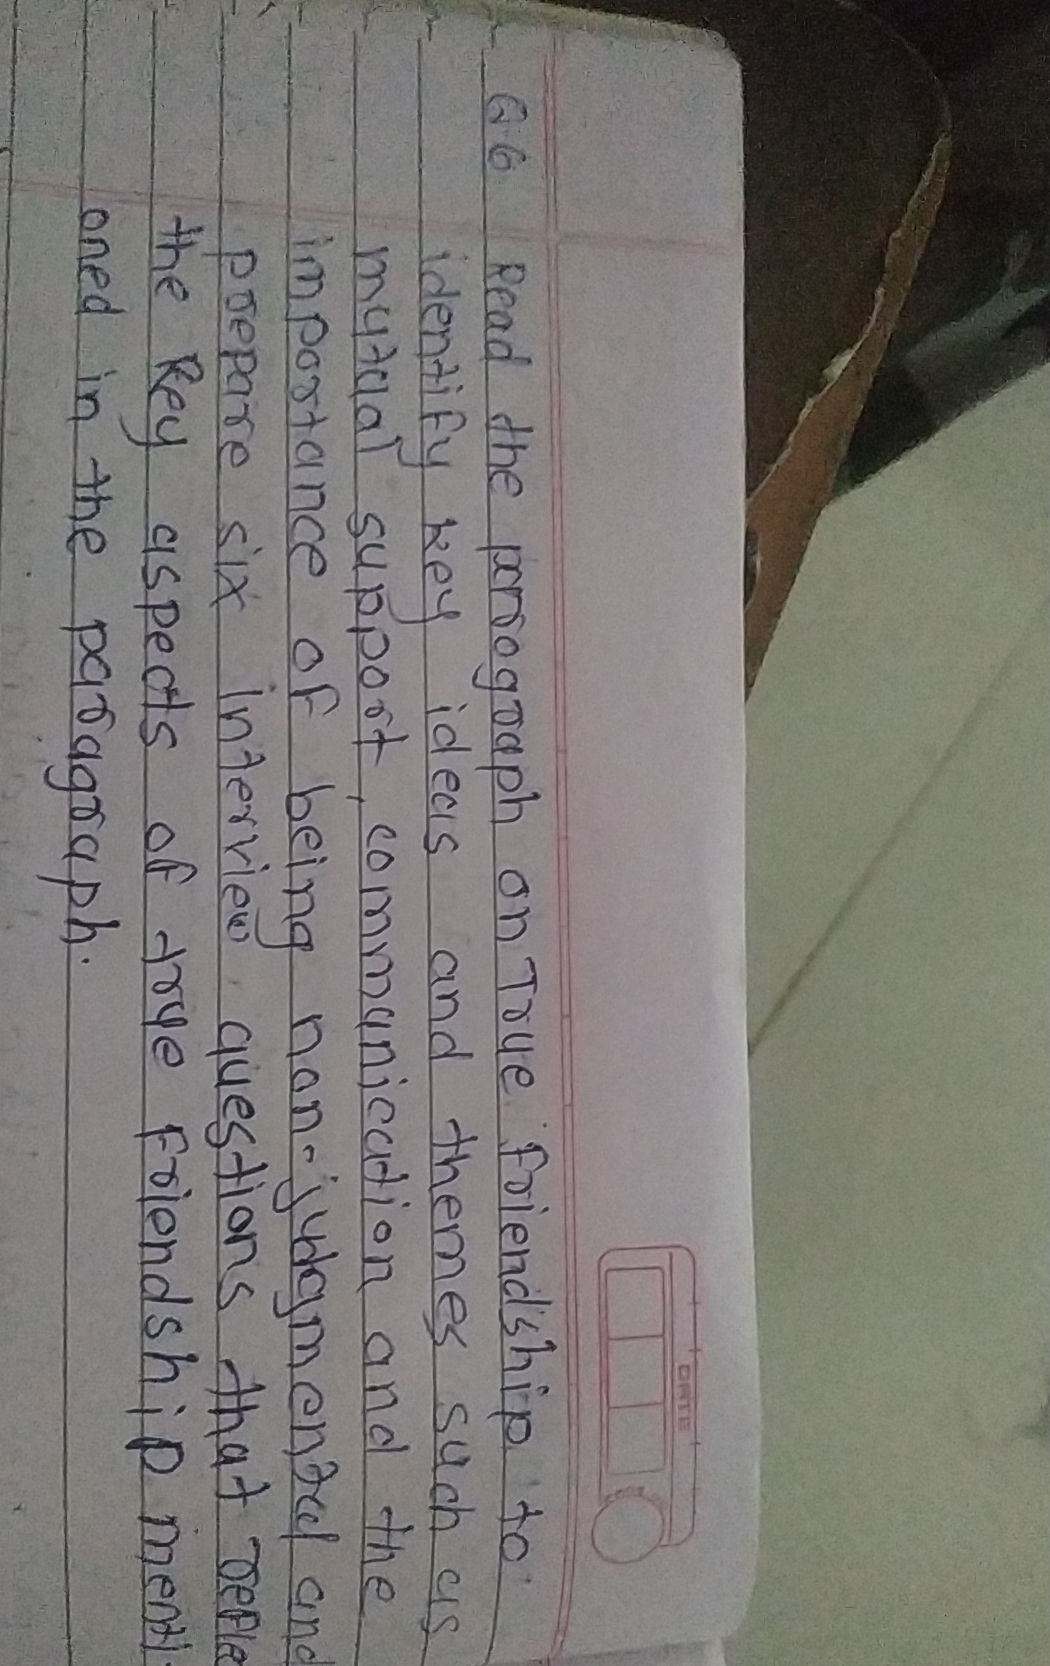 DATE
Q.6 Read the paragraph on True friendship to
identify key ideas and themes such as
mutual support, communication and the
importance of being non-judgmental and
prepare six interview questions that refle
the key aspects of true friendship menti-
oned in the paragraph.